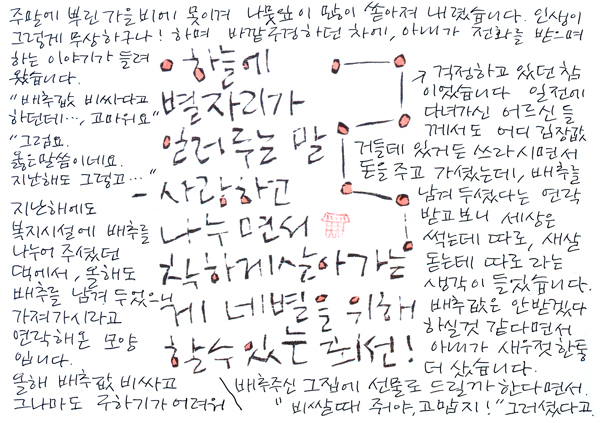 주말에 뿌린 가을비에 못이겨 나뭇잎이 많이 쏟아져 내렸습니다. 인생이
그렇게 무상하구나! 하며 바깥구경하던 차에, 아내가 전화를 받으며
하는 이야기가 들려
왔습니다.
"배추값 비싸다고
하던데…, 고마워요"
"그럼요.
옳은말씀이네요.
지난해도 그렇고…"
지난해에도
복지시설에 배추를
나누어 주셨던
댁에서, 올해도
배추를 남겨 두었으니
가져가시라고
연락해온 모양
입니다.
올해 배추값 비싸고
그나마도 구하기가 어려워
걱정하고 있던 참
이었습니다 일전에
다녀가신 어르신 들
께서도 어디 김장값
거들데 있거든 쓰라시면서
돈을 주고 가셨는데, 배추를
남겨 두셨다는 연락
받고보니 세상은
썩는데 따로, 새살
돋는데 따로 라는
생각이 들었습니다.
배추값은 안받겠다
하실것 같다면서
아내가 새우젓한통
더 샀습니다.
배추주신 그집에 선물로 드릴까 한다면서.
"비쌀때 줘야, 고맙지!" 그러셨다고.
하늘에
별자리가
일러주는 말
- 사랑하고
나누면서
착하게살아가는
게 네별을 위해
할수있는 최선!